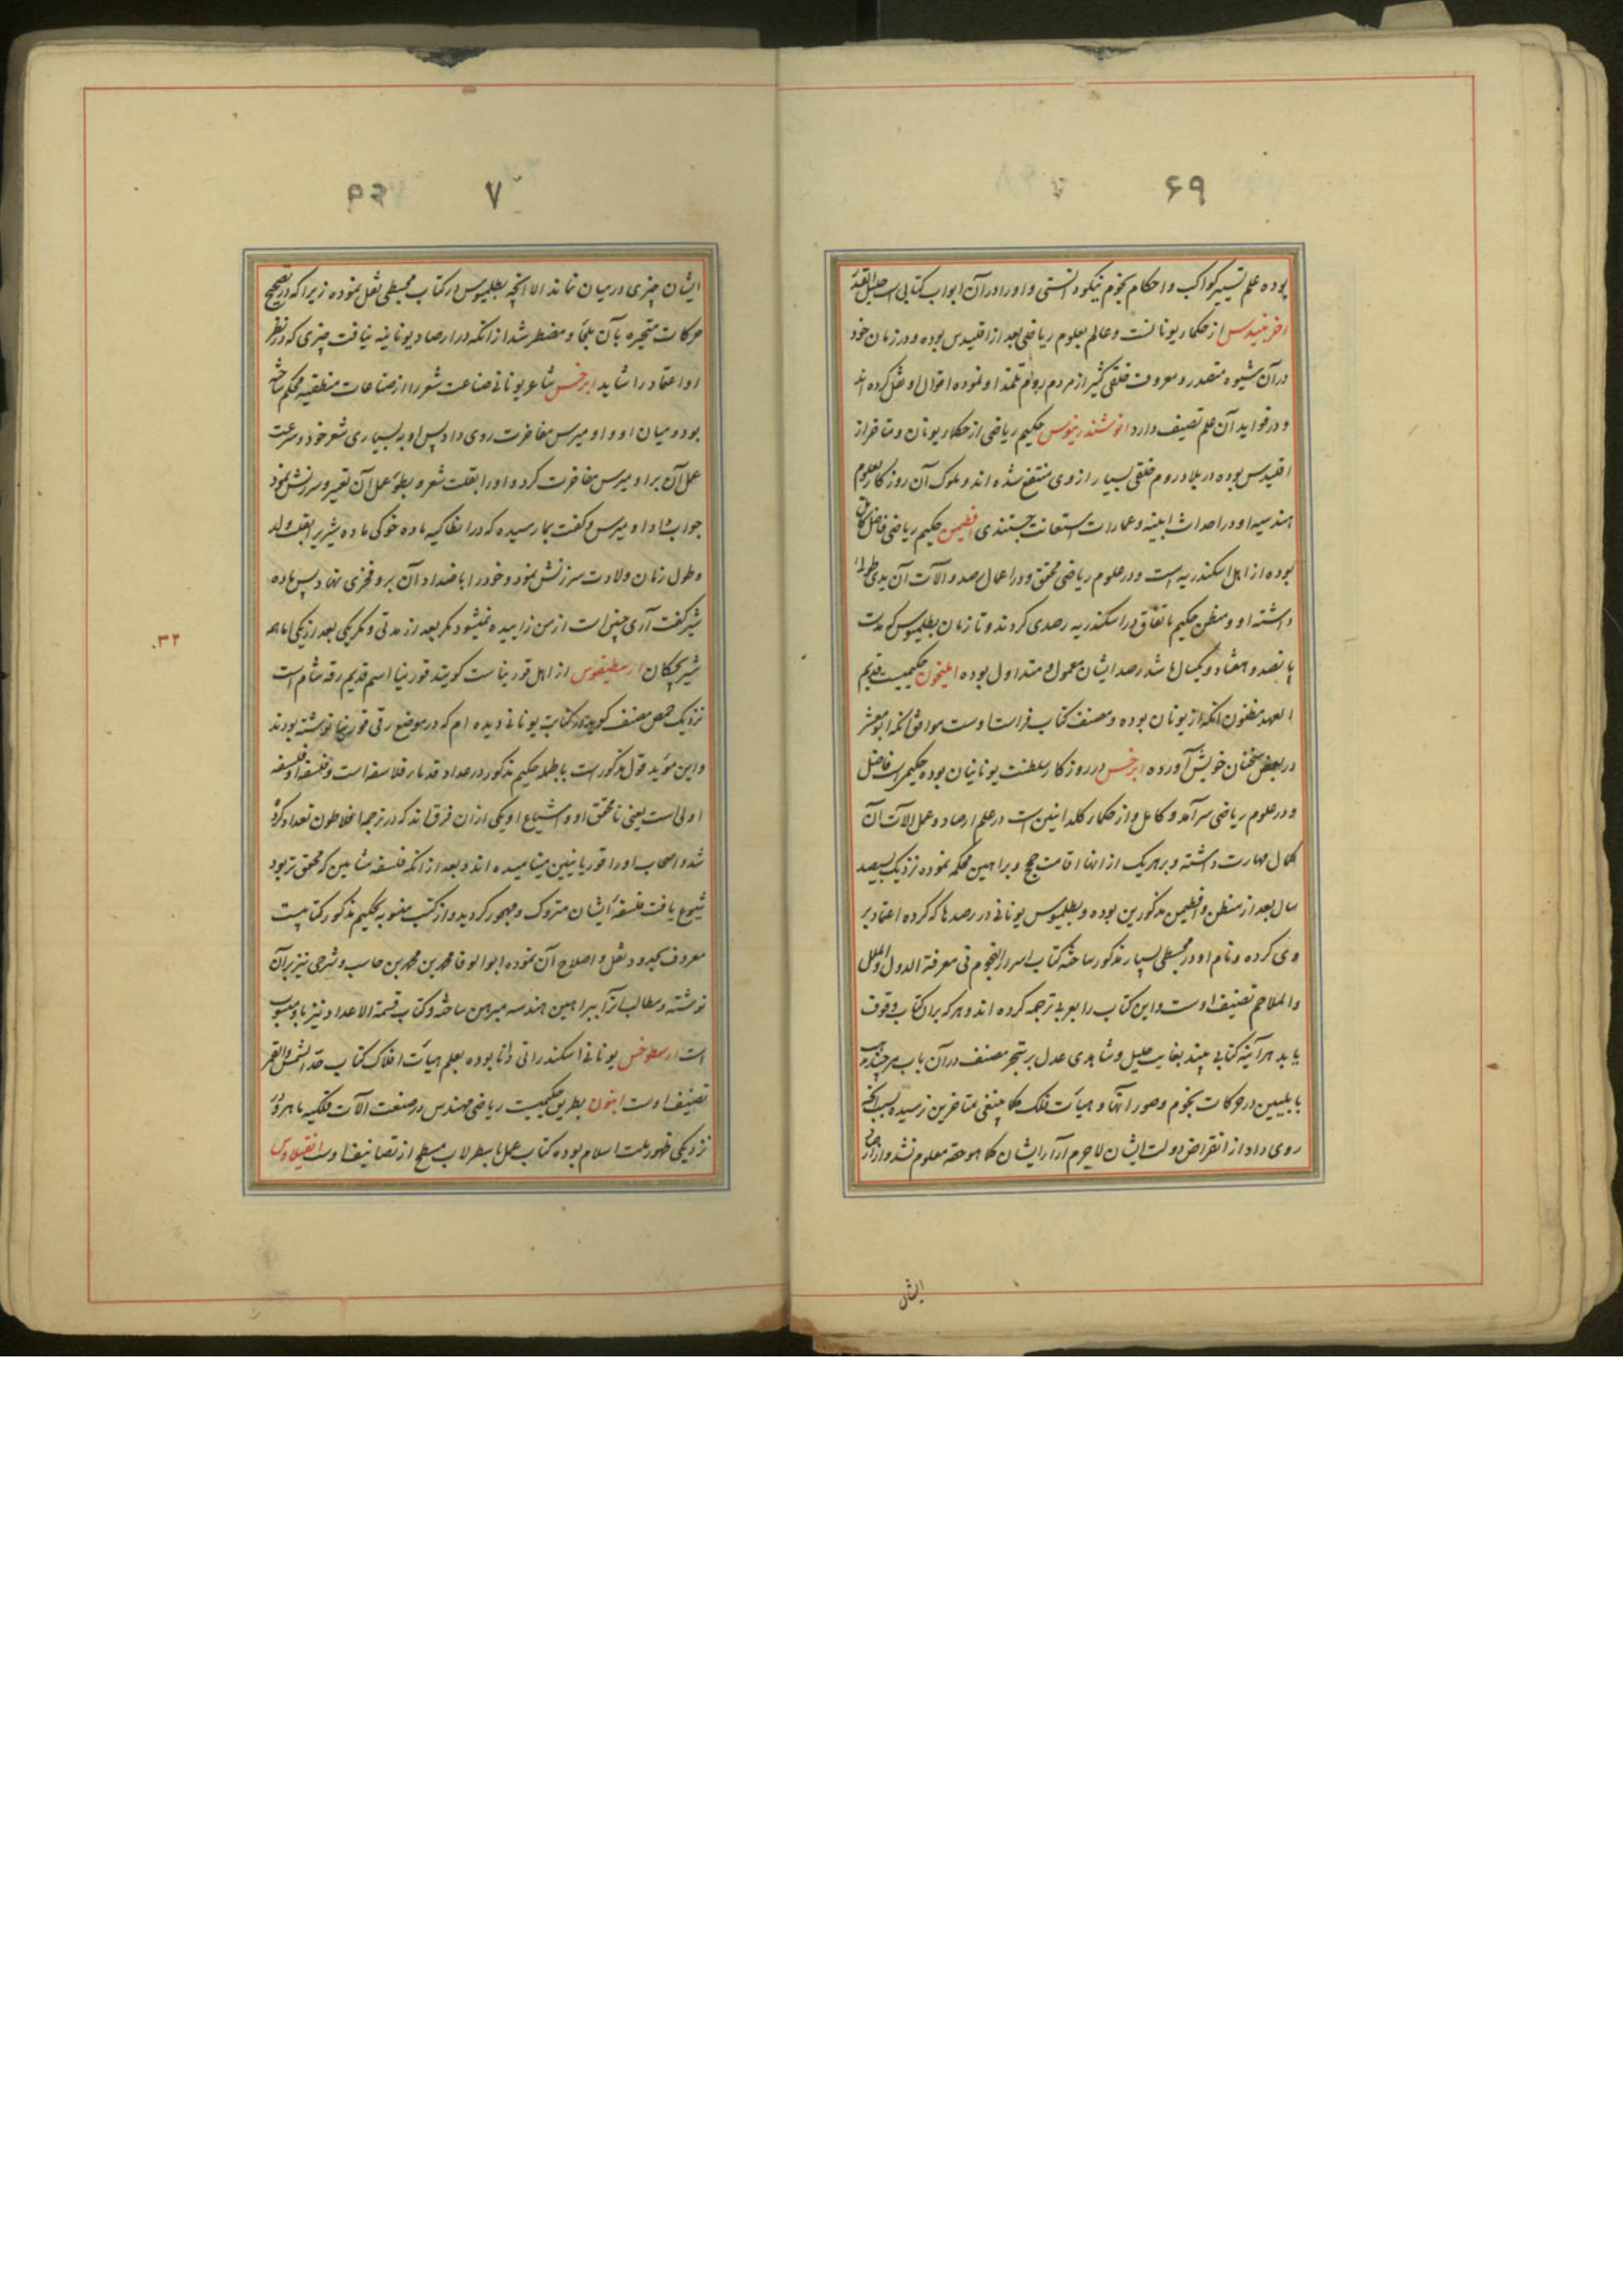 ۶۹
بوده علم تسییر کواکب و احکام نجوم نیکو دانستی و او را در آن ابواب کتابی است جلیل القدر
از حکماء یونانست و عالم بعلوم ریاضی بعد از اقلیدس بوده و در زمان خود
در آن شیوه متصدر و معروف خلقی کثیر از مردم روم تلمذ او نموده اقوال او نقل کرده اند
و در فواید آن علم تصنیف دارد حکیم ریاضی از حکماء یونان و متاخر از
اقلیدس بوده در بلاد روم خلقی بسیار از وی منتفع شده اند و ملوک آن روزکار بعلوم
هندسیه او در احداث ابنیه و عمارات استعانت جستندی افطیمن حکیم ریاضی فاضل کامل
بوده از اهل اسکندریه است و در علوم ریاضی محقق و در اعمال رصد و آلات آن یدی طولی
داشته او و مطن حکیم باتفاق در اسکندریه رصدی کردند و تا زمان بطلمیوس که مدت
پانصد و هفتاد و یکسال باشد رصد ایشان معمول و متداول بوده ابلیخون حکیمیست قدیم
العهد مظنون آنکه از یونان بوده و مصنف کتاب فراست اوست موافق آنکه ابو معشر
در بعض سخنان خویش آورده ابرخس در روزکار سلطنت یونانیان بوده حکیمی است فاضل
و در علوم ریاضی سرآمد و کامل و از حکماء کلدانیین است در علم ارصاد و عمل آلات آن
کمال مهارت داشته و بر هریک از آنها اقامت حجج و براهین محکمه نموده نزدیک بسیصد
سال بعد از منطن و افطیمن مذکورین بوده و بطلمیوس یونانی در رصدها که کرده اعتماد بر
وی کرده و نام او در مجسطی بسیار مذکور ساخته کتاب اسرار النجوم فی معرفة الدول و الملل
و الملاحم تصنیف اوست و این کتاب را بعربی ترجمه کرده اند و هرکه بر آن کتاب وقوف
یابد هرآینه کتابی بیند بغایت جلیل و شاهدی عدل بر تبحر مصنف در آن باب هرچند مذهب
بابلیین در حرکات نجوم و صور آنها و هیأت فلک کما ینبغی بمتاخرین نرسیده بسبب آنچه
روی داد از انقراض دولت ایشان لاجرم آراء ایشان کما هو حقه معلوم نشد و از
ایشان
۷۰
ایشان چیزی در میان نماند الا آنچه بطلمیوس در کتاب مجسطی نقل نموده زیرا که در تصحیح
حرکات متحیره بآن ملجأ و مضطر شد از آنکه در ارصاد یونانیه نیافت چیزی که در نظر
او اعتماد را شاید ابرخس شاعر یونانی صناعت شعر را از صناعات منطقیه محکم ساخته
بود و میان او و اومیرس مفاخرت روی داد پس او به بسیاری شعر خود و سرعت
عمل آن بر اومیرس مفاخرت کرد و او را بقلت شعر و بطوء عمل آن تعییر و سرزنش نمود
جوابش داد اومیرس و کفت بما رسیده که در انطاکیه ماده خوکی ماده شیر را بقلت ولد
و طول زمان ولادت سرزنش نمود و خود را باضداد آن بر و فخری نهاد پس ماده
شیر کفت آری چنین است از من زاییده نمیشود مکر بعد از مدتی و مکر یکی بعد از یکی اما همه
۳۲۰
شیر بچکان ارسطیفوس از اهل قورینا است کویند قورینا اسم قدیم رقه شام است
نزدیک حمص مصنف کوید در کتاب یونانی دیده ام که در موضع رقی قورینا نوشته بودند
و این مؤید قول مذکور است بالجمله حکیم مذکور در عداد قدماء فلاسفه است و فلسفه او فلسفه
اولی است یعنی نامحقق او و اشیاع او یکی از آن فرق اند که در ترجمه افلاطون تعداد کرده
شد و اصحاب او را قوریانیین مینامیده اند و بعد از آنکه فلسفه مشایین که محقق تر بود
شیوع یافت فلسفه ایشان متروک و مهجور کردید و از کتب منسوبه بحکیم مذکور کتابیست
معروف بحدود نقل و اصلاح آن نموده ابو الوفا محمد بن محمد حاسب و شرحی نیز بر آن
نوشته و مطالبات را ببراهین هندسه مبرهن ساخته و کتاب قسمة الاعداد نیز باو منسوب
است ارسطوخس یونانی اسکندرانی دانا بوده بعلم هیأت افلاک کتاب حد الشمس و القمر
تصنیف اوست ابنون بطریق حکیمیست ریاضی مهندس در صنعت آلات فلکیه ماهر و در
نزدیکی ظهور ملت اسلام بوده کتاب عمل باسطرلاب مسطح از تصانیف اوست انقیلاوس